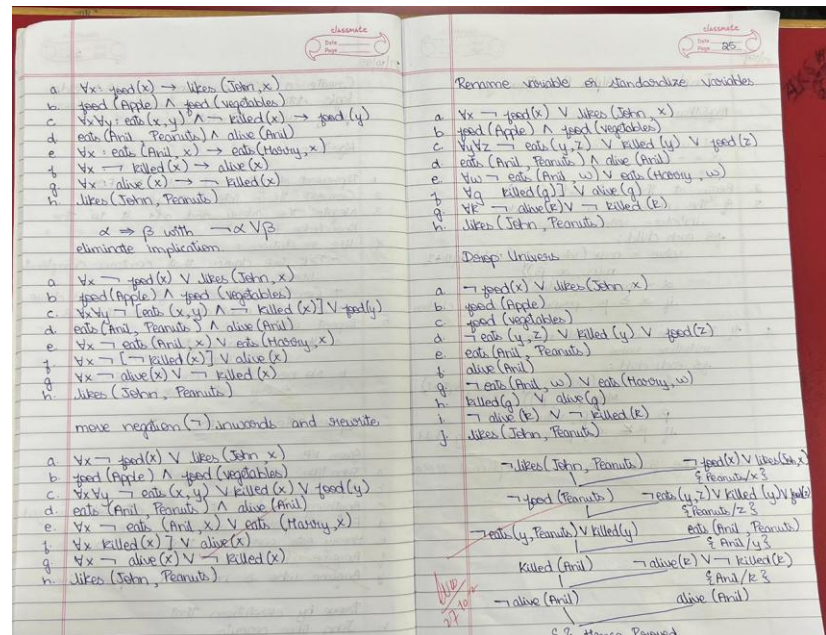 classmate
Date
Page
a. ∀x: food(x) → likes (John, x)
b. food (Apple) ∧ food (vegetables)
c. ∀x∀y: eats (x, y) ∧ ¬ killed (x) → food (y)
d. eats (Anil, Peanuts) ∧ alive (Anil)
e. ∀x : eats (Anil, x) → eats (Harry, x)
f. ∀x ¬ killed (x) → alive (x)
g. ∀x: alive (x) → ¬ killed (x)
h. likes (John, Peanuts)
α ⇒ β with ¬α ∨ β
eliminate implication
a. ∀x ¬ food (x) ∨ likes (John, x)
b. food (Apple) ∧ food (vegetables)
c. ∀x∀y ¬ [eats (x, y) ∧ ¬ killed (x)] ∨ food (y)
d. eats (Anil, Peanuts) ∧ alive (Anil)
e. ∀x ¬ eats (Anil, x) ∨ eats (Harry, x)
f. ∀x ¬ [¬ killed (x)] ∨ alive (x)
g. ∀x ¬ alive (x) ∨ ¬ killed (x)
h. likes (John, Peanuts)
move negation (¬) inwards and rewrite
a. ∀x ¬ food (x) ∨ likes (John, x)
b. food (Apple) ∧ food (vegetables)
c. ∀x∀y ¬ eats (x, y) ∨ killed (x) ∨ food (y)
d. eats (Anil, Peanuts) ∧ alive (Anil)
e. ∀x ¬ eats (Anil, x) ∨ eats (Harry, x)
f. ∀x killed (x) ] ∨ alive (x)
g. ∀x ¬ alive (x) ∨ ¬ killed (x)
h. likes (John, Peanuts)
classmate
Date
Page 25
Rename variable or standardize variables
a. ∀x ¬ food (x) ∨ likes (John, x)
b. food (Apple) ∧ food (vegetables)
c. ∀y∀z ¬ eats (y, z) ∨ killed (y) ∨ food (z)
d. eats (Anil, Peanuts) ∧ alive (Anil)
e. ∀w ¬ eats (Anil, w) ∨ eats (Harry, w)
f. ∀g killed (g)] ∨ alive (g)
g. ∀k ¬ alive (k) ∨ ¬ killed (k)
h. likes (John, Peanuts)
Drop Univers
a. ¬ food (x) ∨ likes (John, x)
b. food (Apple)
c. food (vegetables)
d. ¬ eats (y, z) ∨ killed (y) ∨ food (z)
e. eats (Anil, Peanuts)
f. alive (Anil)
g. ¬ eats (Anil, w) ∨ eats (Harry, w)
h. killed (g) ∨ alive (g)
i. ¬ alive (k) ∨ ¬ killed (k)
j. likes (John, Peanuts)
¬ likes (John, Peanuts) ¬ food (x) ∨ likes (John, x)
{ Peanuts/x }
¬ food (Peanuts) ¬ eats (y, z) ∨ killed (y) ∨ food (z)
{ Peanuts/z }
¬ eats (y, Peanuts) ∨ killed (y) eats (Anil, Peanuts)
{ Anil/y }
Killed (Anil) ¬ alive (k) ∨ ¬ killed (k)
{ Anil/k }
¬ alive (Anil) alive (Anil)
{ } Hence Proved